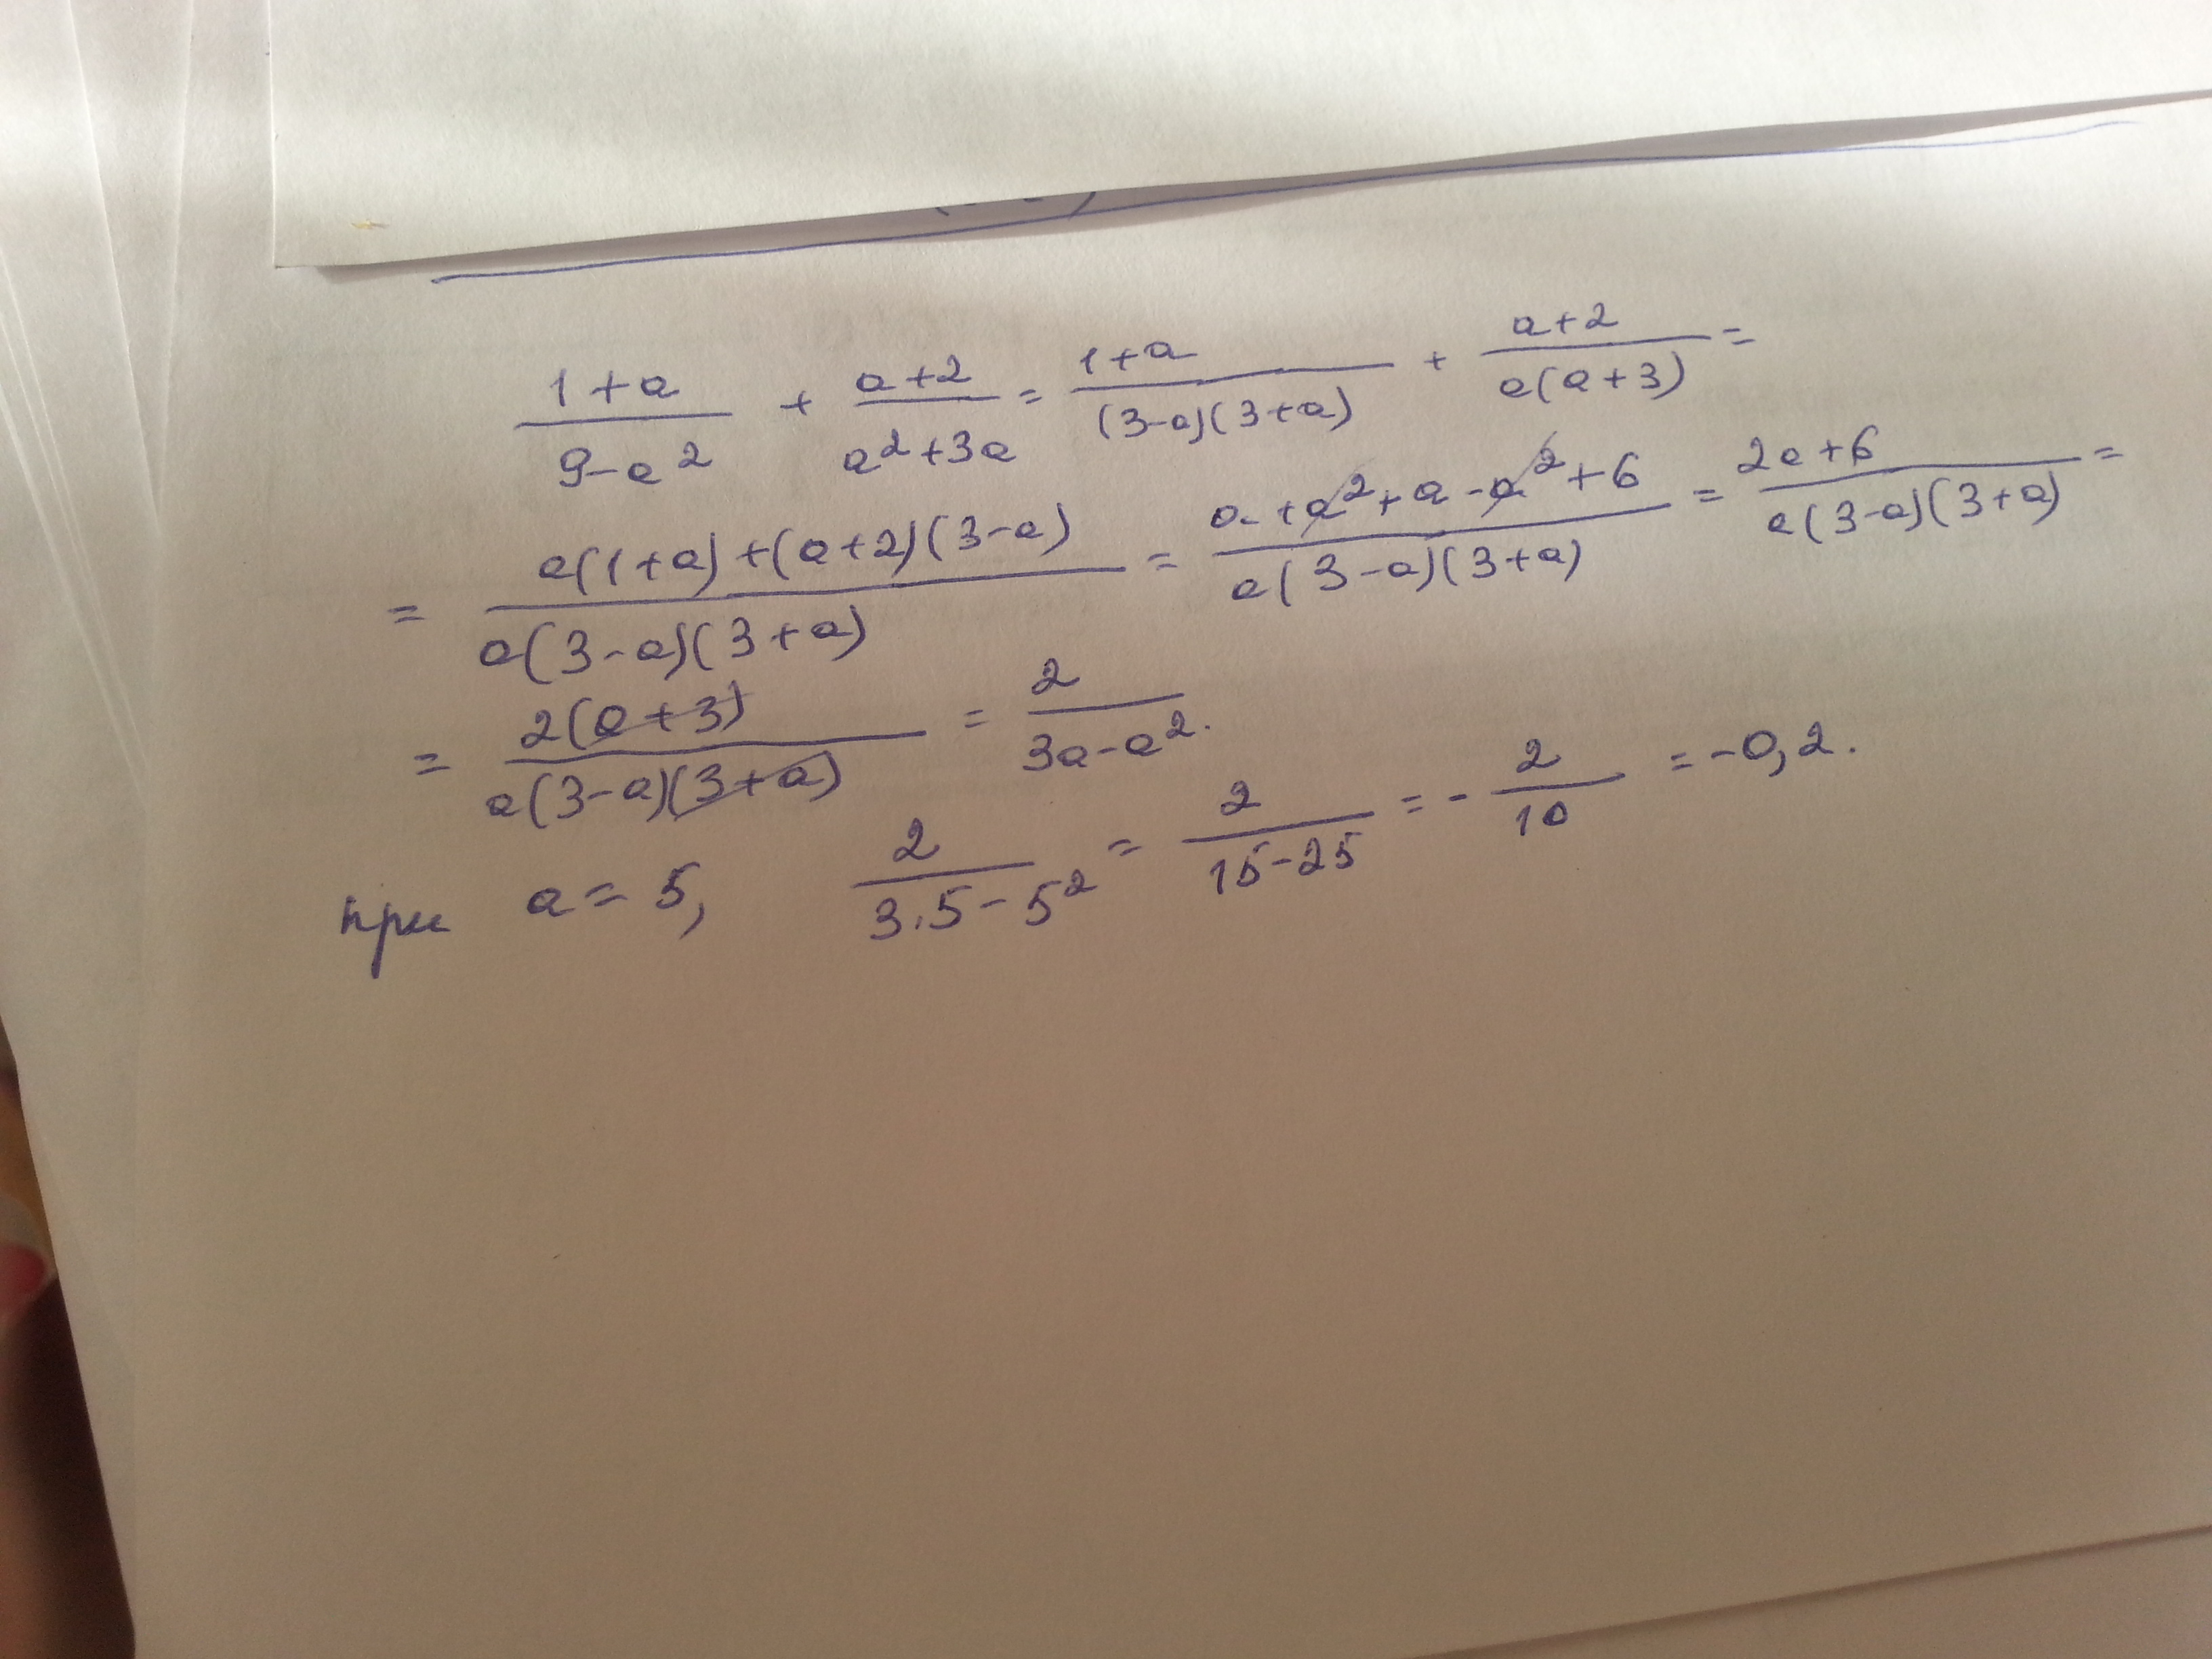 1+a/9-a² + a+2/a²+3a = 1+a/(3-a)(3+a) + a+2/a(a+3) =
= a(1+a)+(a+2)(3-a)/a(3-a)(3+a) = a+a²+a-a²+6/a(3-a)(3+a) = 2a+6/a(3-a)(3+a) =
= 2(a+3)/a(3-a)(3+a) = 2/3a-a².
при a = 5, 2/3·5-5² = 2/15-25 = - 2/10 = -0,2.